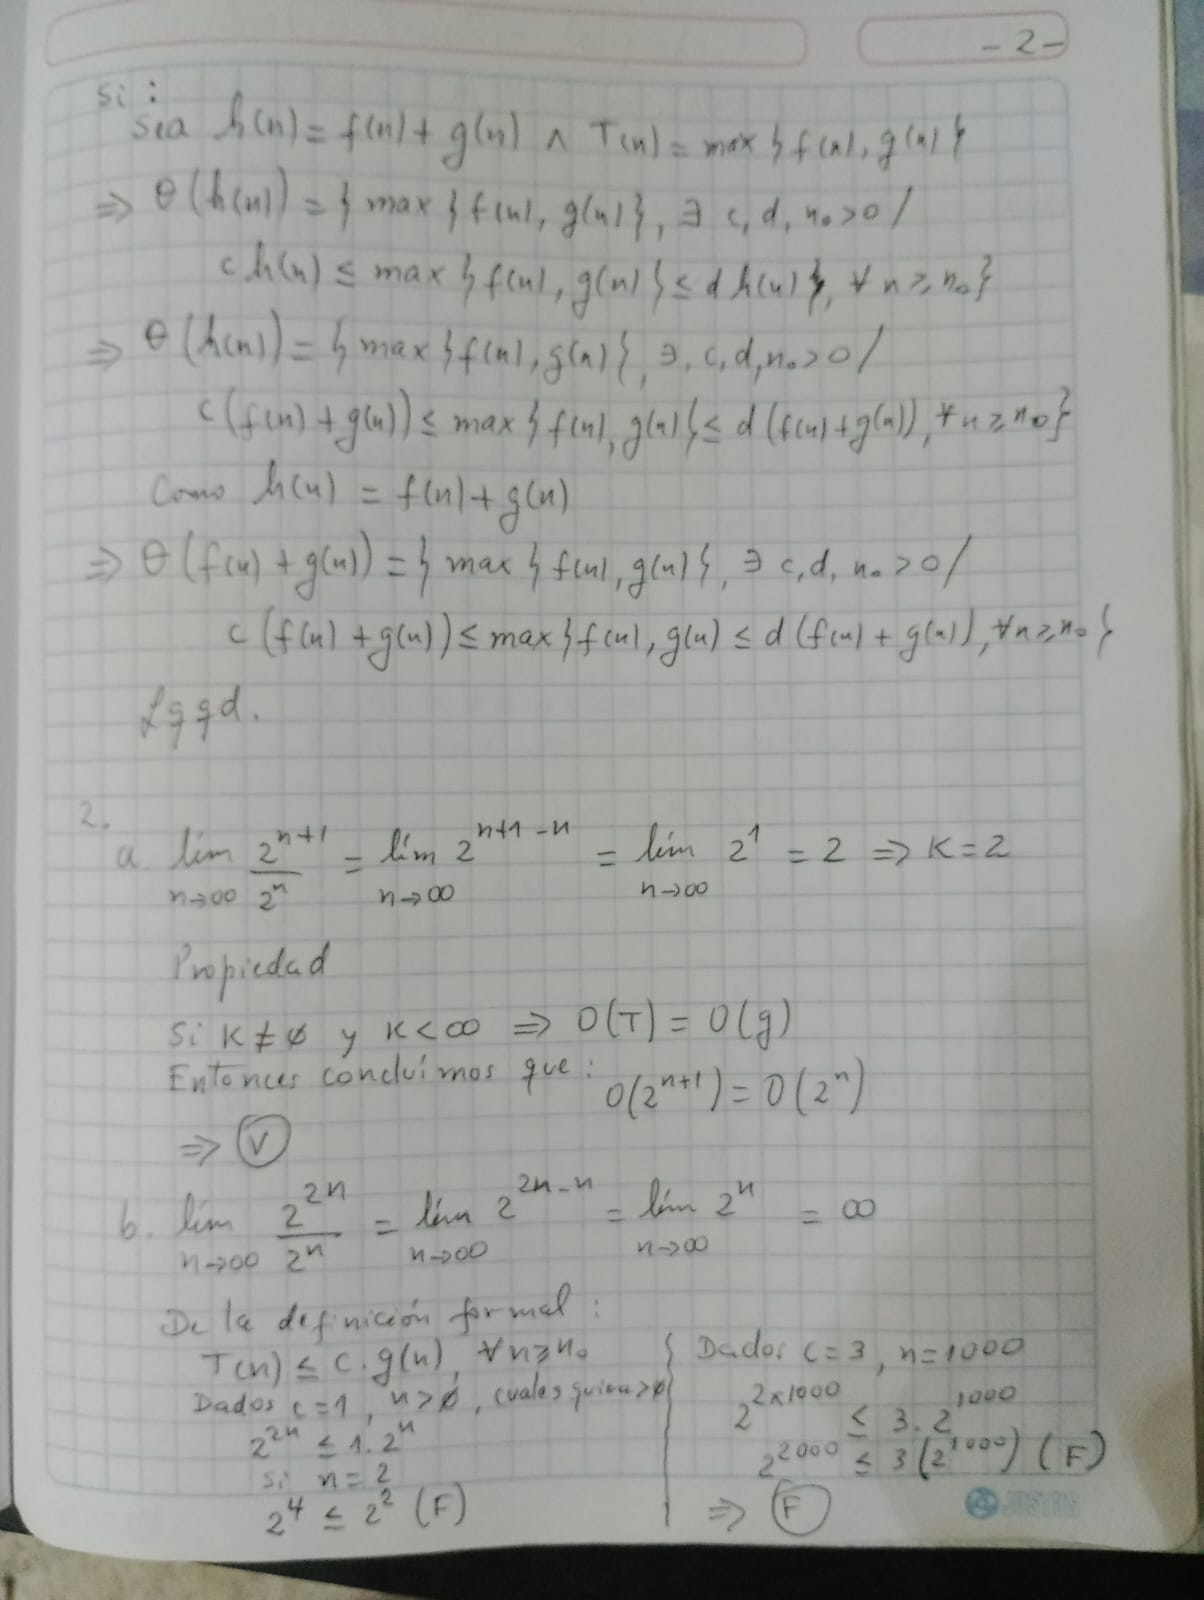 - 2 -
Si :
Sea h(n) = f(n) + g(n) ∧ T(n) = max { f(n), g(n) }
⇒ θ(h(n)) = { max { f(n), g(n) }, ∃ c, d, n₀ > 0 /
c h(n) ≤ max { f(n), g(n) } ≤ d h(n) }, ∀ n ≥ n₀ }
⇒ θ(h(n)) = { max { f(n), g(n) }, ∃, c, d, n₀ > 0 /
c (f(n) + g(n)) ≤ max { f(n), g(n) } ≤ d (f(n) + g(n)), ∀ n ≥ n₀ }
Como h(n) = f(n) + g(n)
⇒ θ(f(n) + g(n)) = { max { f(n), g(n) }, ∃ c, d, n₀ > 0 /
c (f(n) + g(n)) ≤ max { f(n), g(n) ≤ d (f(n) + g(n)), ∀ n ≥ n₀ }
Lqqd.
2.
a. lím_{n→∞} 2^{n+1} / 2^n = lím_{n→∞} 2^{n+1-n} = lím_{n→∞} 2^1 = 2 ⇒ K = 2
Propiedad
Si K ≠ ø y K < ∞ ⇒ O(T) = O(g)
Entonces concluímos que : O(2^{n+1}) = O(2^n)
⇒ V
b. lím_{n→∞} 2^{2n} / 2^n = lím_{n→∞} 2^{2n-n} = lím_{n→∞} 2^n = ∞
De la definición formal :
T(n) ≤ c . g(n), ∀ n ≥ n₀
Dados c = 1, n > ø, cualesquiera > ø
2^{2n} ≤ 1 . 2^n
Si n = 2
2^4 ≤ 2^2 (F)
Dados c = 3, n = 1000
2^{2×1000} ≤ 3 . 2^{1000}
2^{2000} ≤ 3 (2^{1000}) (F)
⇒ F
JUSTUS